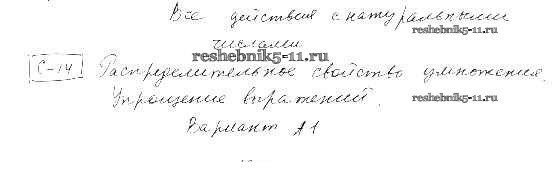 Все действия с натуральными
reshebnik5-11.ru
числами
reshebnik5-11.ru
С-14 Распределительное свойство умножения.
Упрощение выражений.
reshebnik5-11.ru
Вариант А1